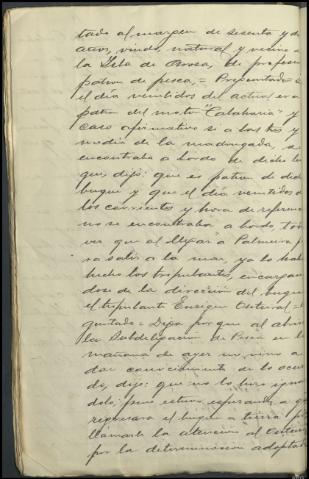 tado al margen de sesenta y d
años, viudo, natural y vecino
la Isla de Arosa, de profesi
patron de pesca, = Preguntado s
el dia veintidos del actual era
patron del moto "Calabaria" y
caso afirmativo si a las tres y
media de la madrugada, se
encontraba a bordo de dicho bu
que, dijo: que es patron de dich
buque y que el dia veintidos d
los corrientes y hora de referen
no se encontraba a bordo, toda
vez que al llegar a Palmeira p
ra salir a la mar, ya lo había
hecho los tripulantes, encargan
dose de la dirección del buque
el tripulante Enrique = 
guntado = Diga porque al abrir
la Subdelegacion de Pesca en la
mañana de ayer no vino a
dar conocimiento de lo ocurri
do, dijo: que no lo hizo
dolo, pero estuvo esperando a q
regresara el buque a tierra p
llamarle la atención al
por la determinación adoptada